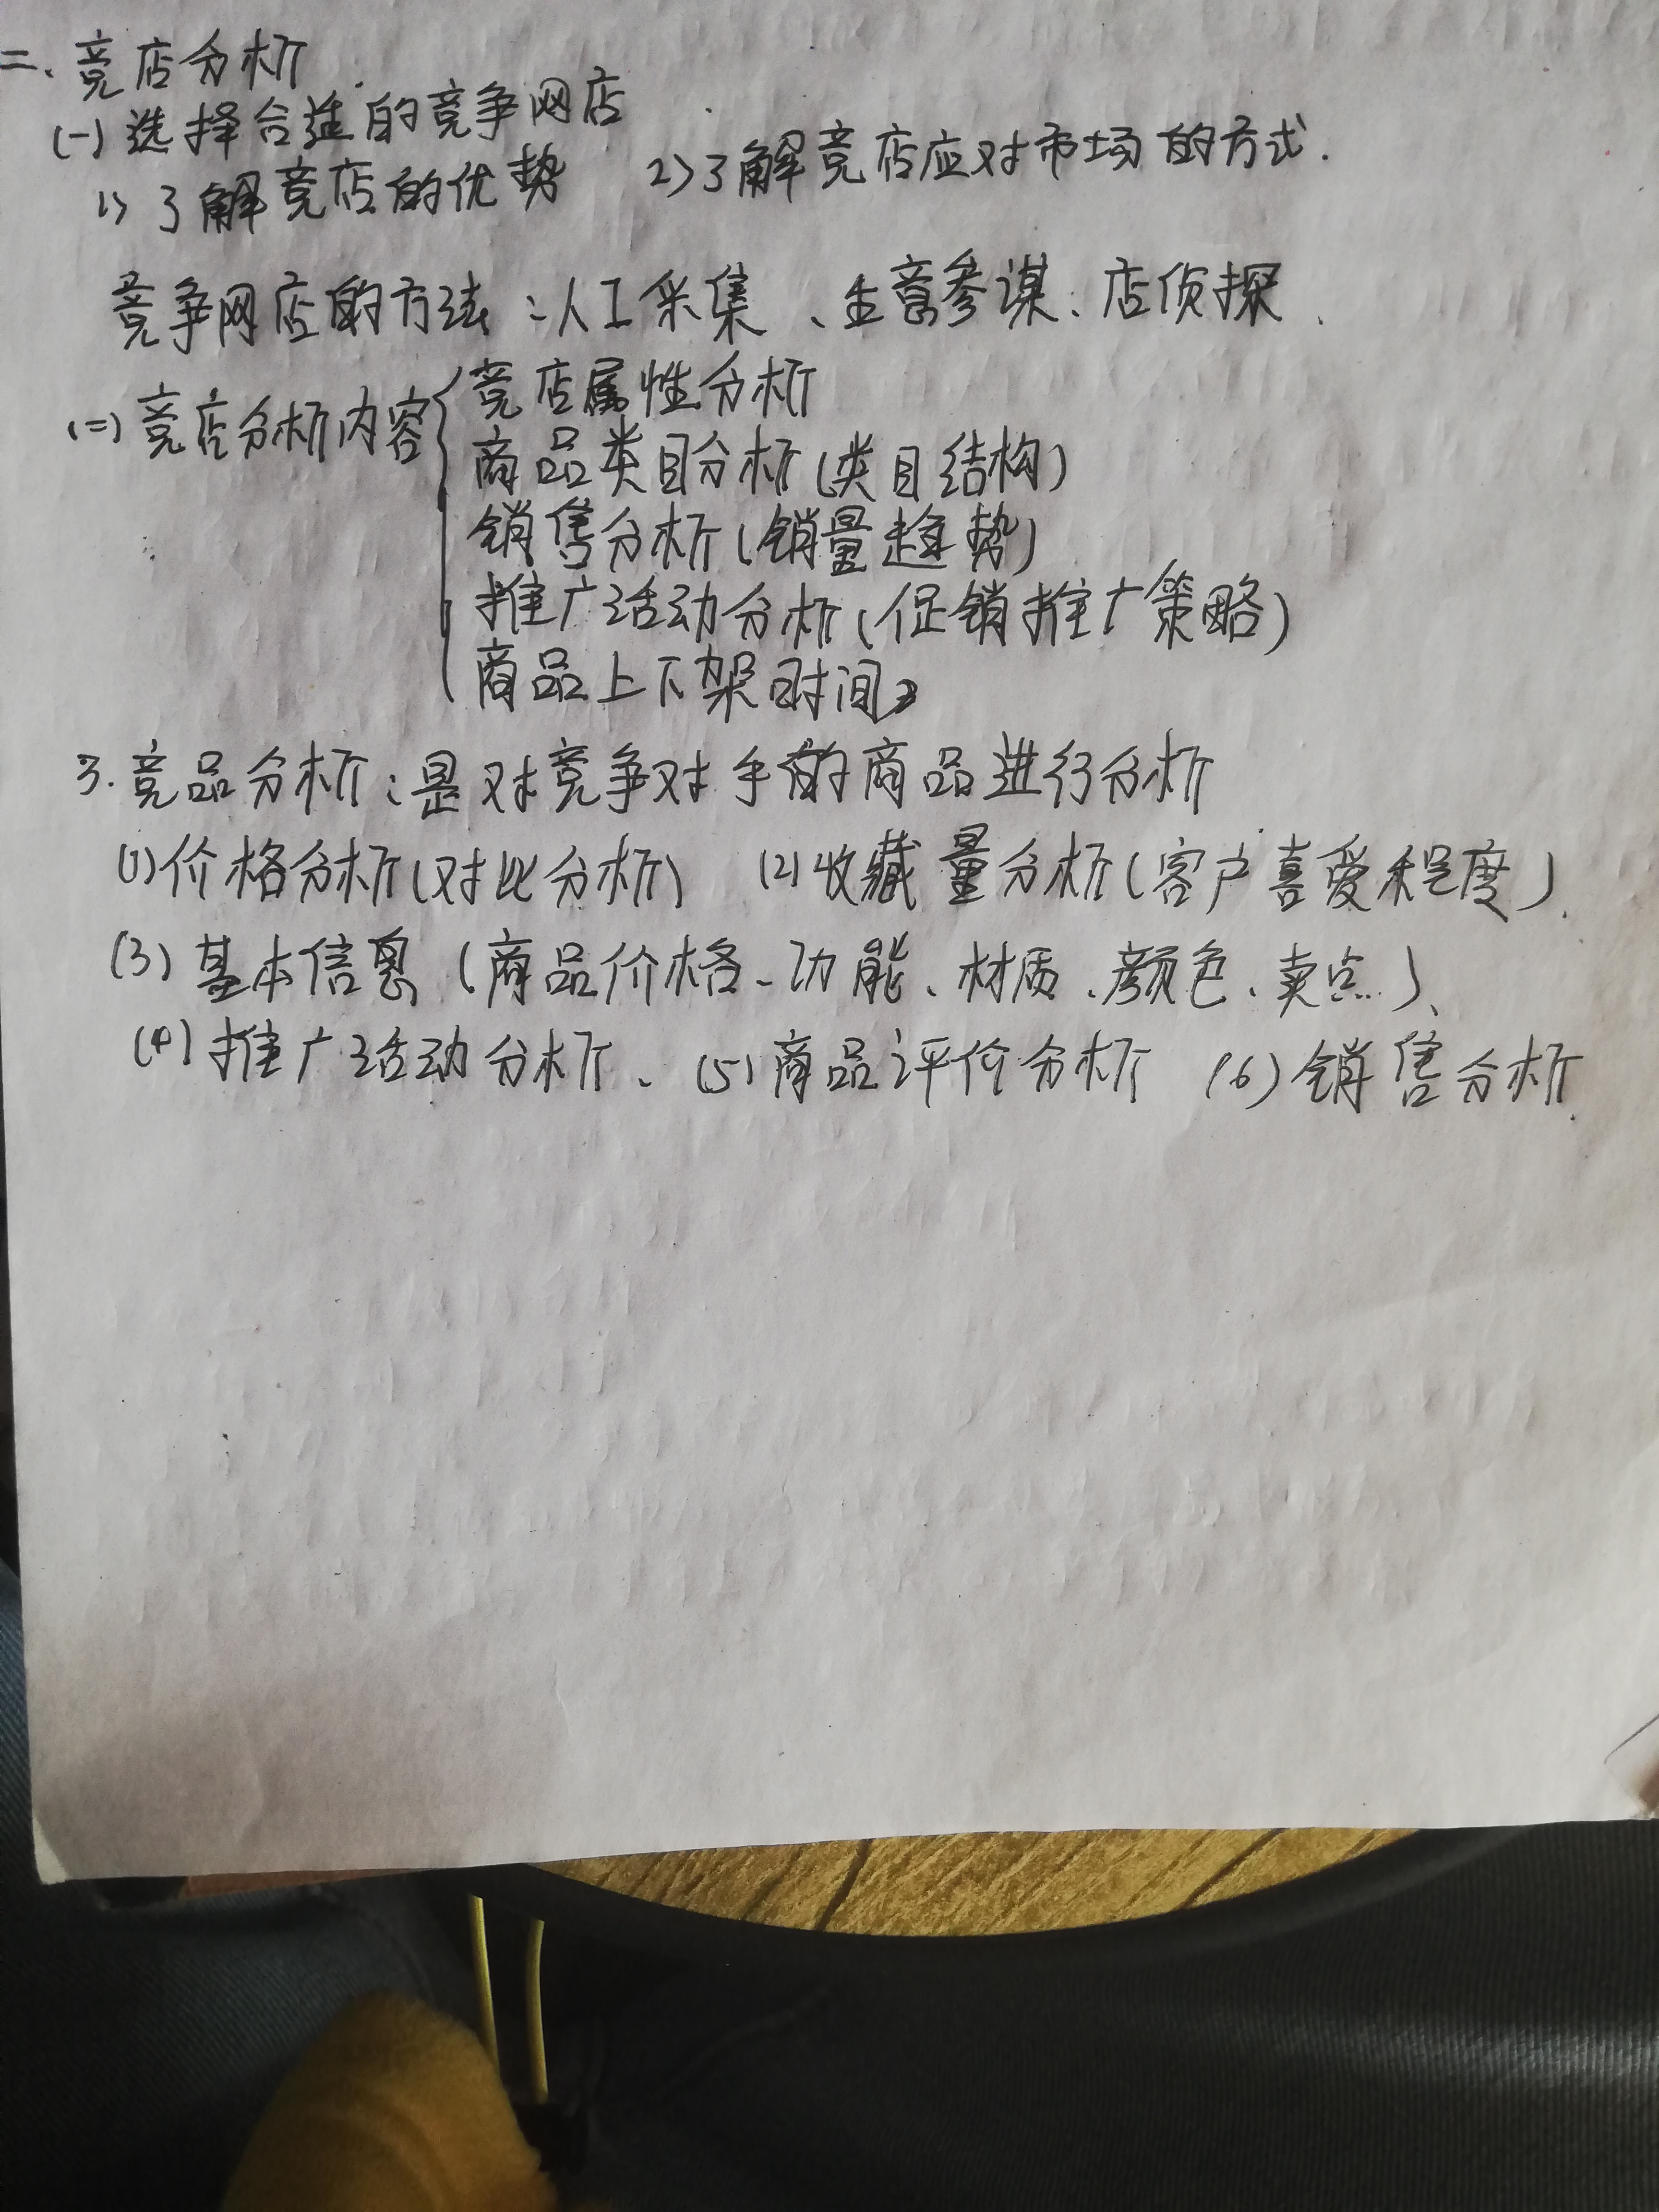 二、竞店分析
(一)选择合适的竞争网店
1>了解竞店的优势 2>了解竞店应对市场的方式.
竞争网店的方法:人工采集、生意参谋、店侦探.
(二)竞店分析内容
竞店属性分析
商品类目分析(类目结构)
销售分析(销量趋势)
推广活动分析(促销推广策略)
商品上下架时间
3.竞品分析:是对竞争对手的商品进行分析
(1)价格分析(对比分析) (2)收藏量分析(客户喜爱程度).
(3)基本信息(商品价格、功能、材质、颜色、卖点)、
(4)推广活动分析、(5)商品评价分析 (6)销售分析.